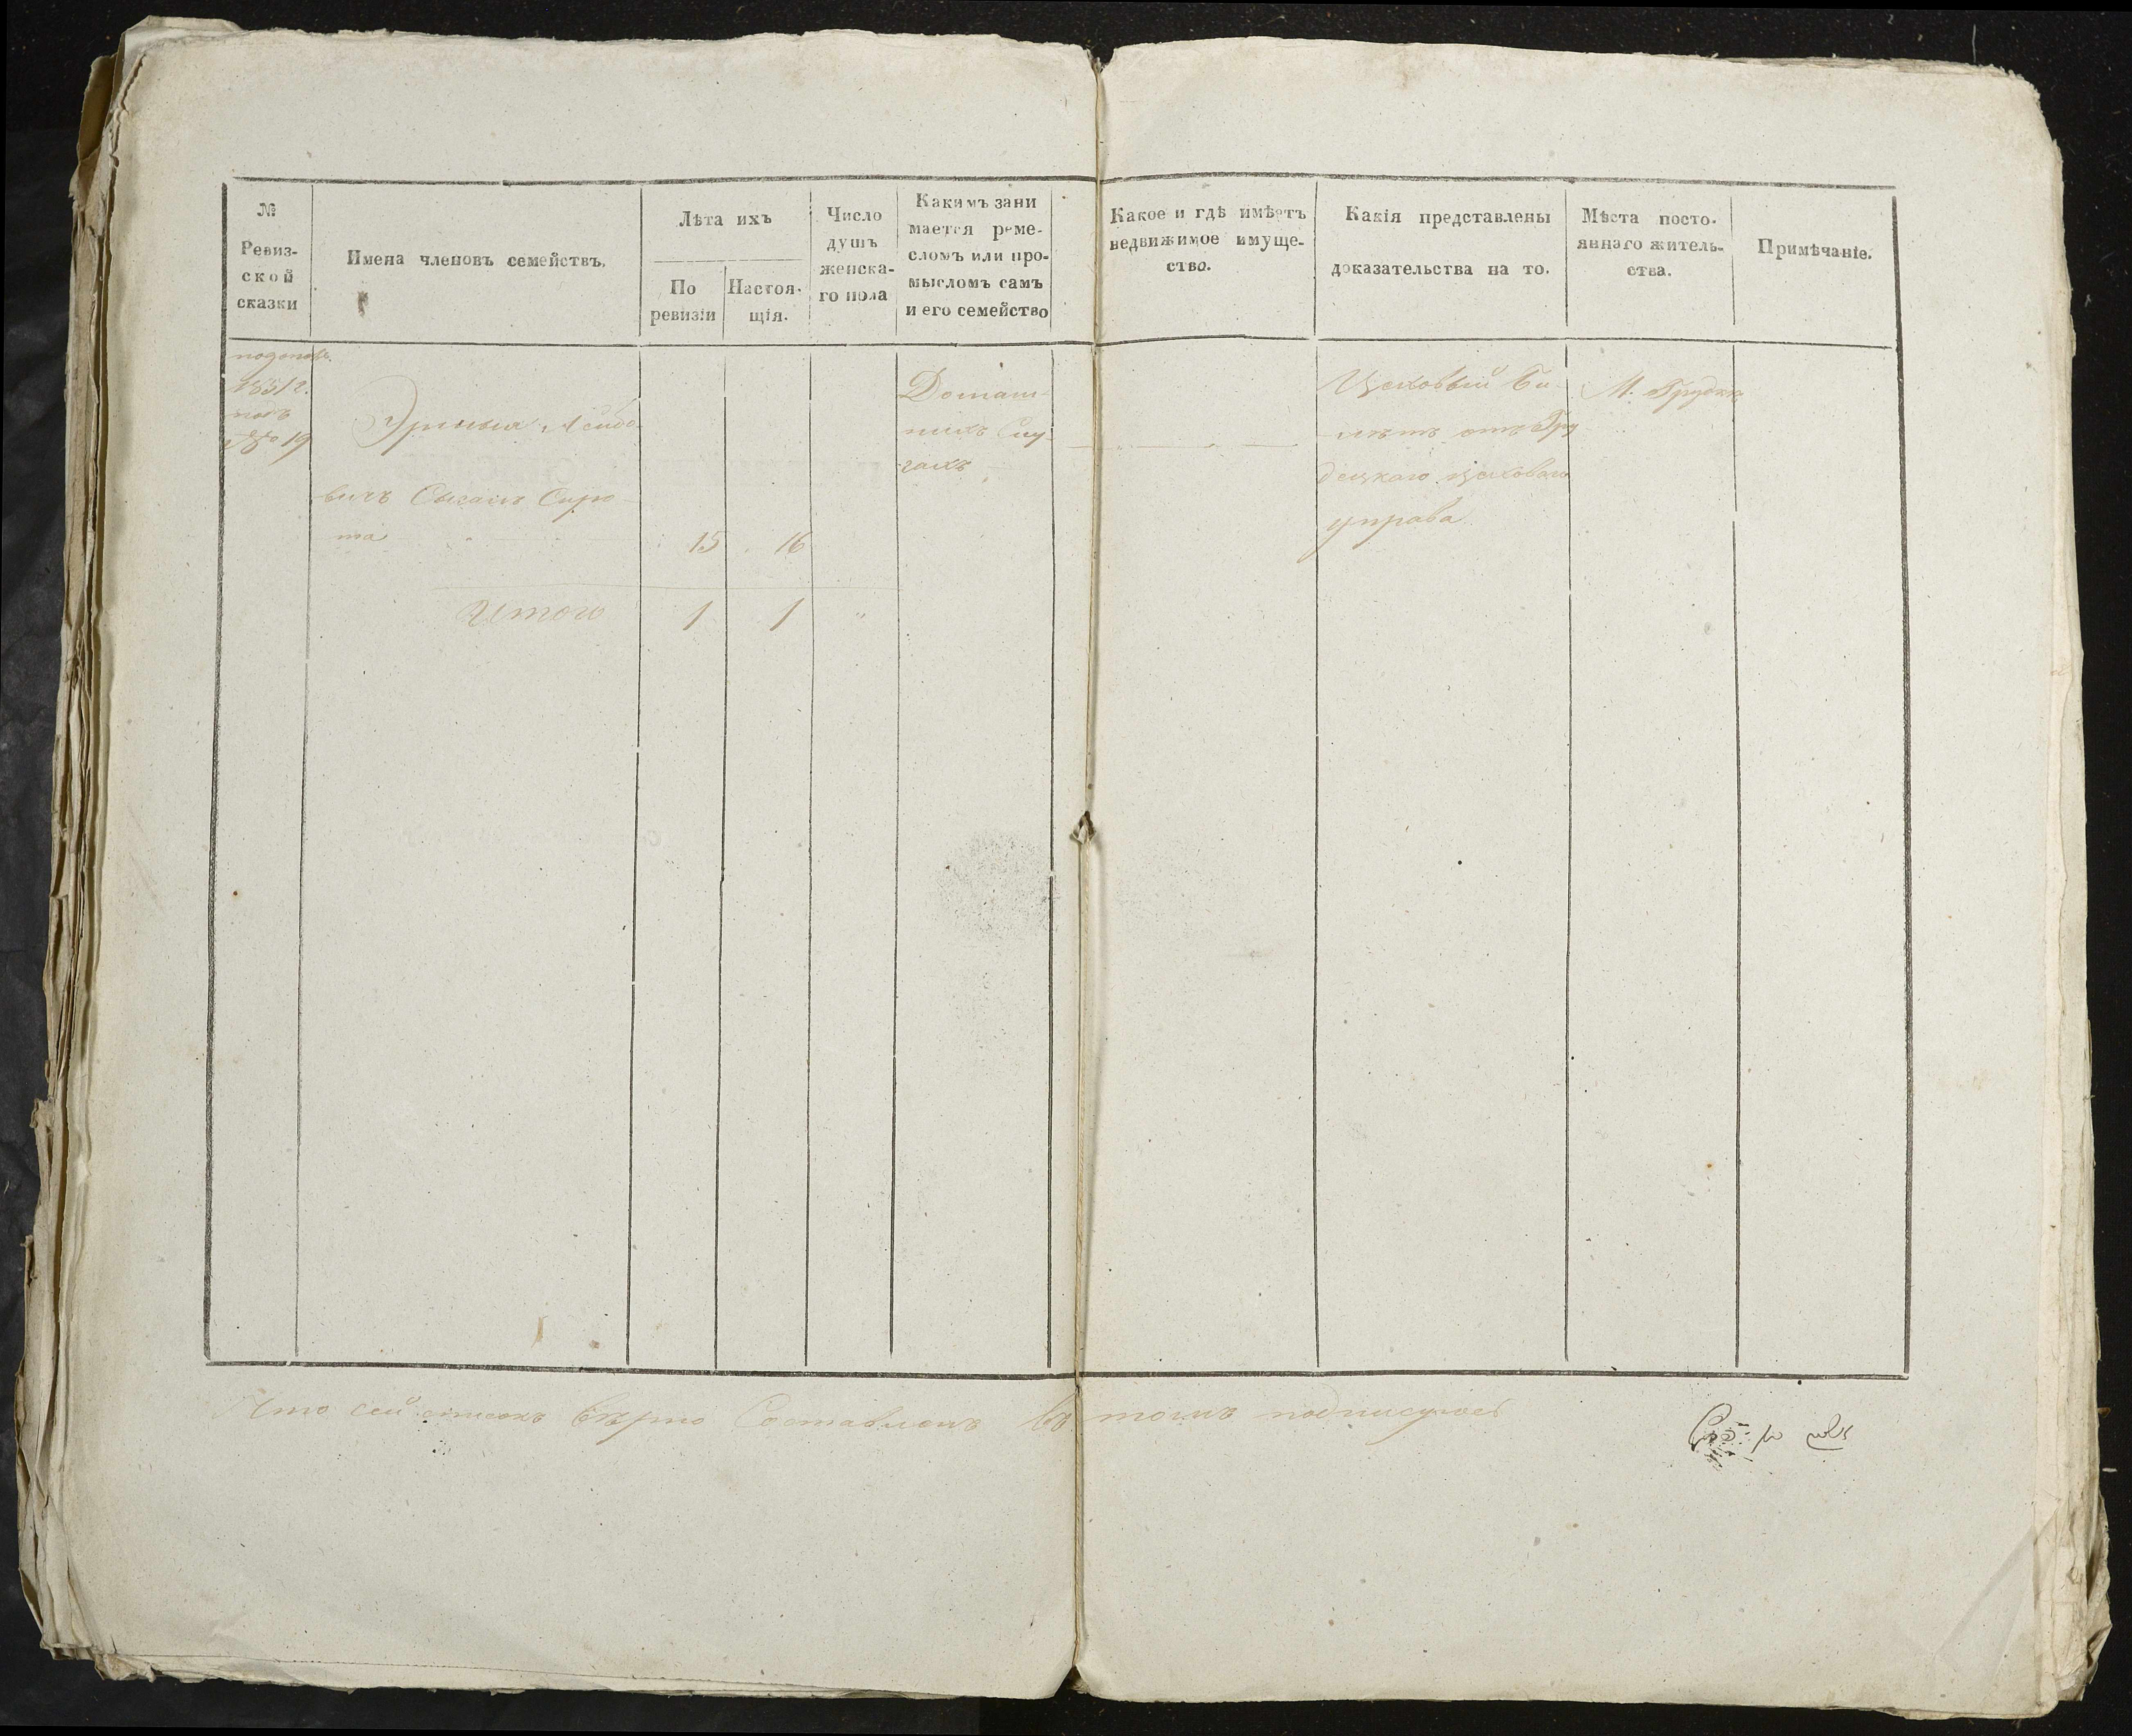 №
Ревиз-
ской
сказки
Имена членовъ семействъ.
Лѣта ихъ
По
ревизіи
Настоя-
щія.
Число
душъ
женска-
го пола
Какимъ зани
мается реме-
сломъ или про-
мысломъ самъ
и его семейство
Какое и гдѣ имѣетъ
недвижимое имуще-
ство.
Какія представлены
доказательства на то.
Мѣста посто-
яннаго житель-
ства.
Примѣчаніе.
№ 19
Лейбо-
вичъ Сиро-
та 15 16
Итого 1 1 "
Domaш-
никъ Слу-
гакъ
Цеховый Би-
летъ отъ Гру
децкаго цеховаго
управа
М. Грудка
Что сей списокъ вѣрно Составленъ въ томъ подписуюсь